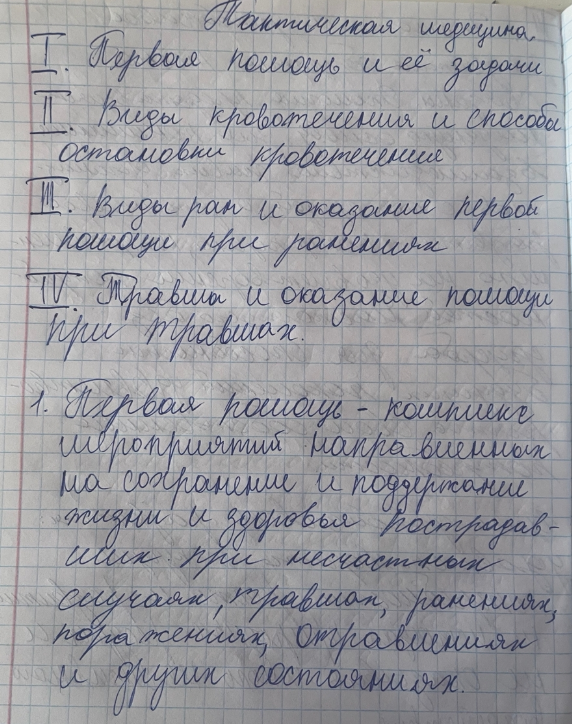 Тактическая медицина.
I. Первая помощь и её задачи
II. Виды кровотечения и способы
остановки кровотечения
III. Виды ран и оказание первой
помощи при ранениях
IV. Травмы и оказание помощи
при травмах.
1. Первая помощь - комплекс
мероприятий направленных
на сохранение и поддержание
жизни и здоровья пострадав-
ших при несчастных
случаях, травмах, ранениях,
поражениях, отравлениях
и других состояниях.